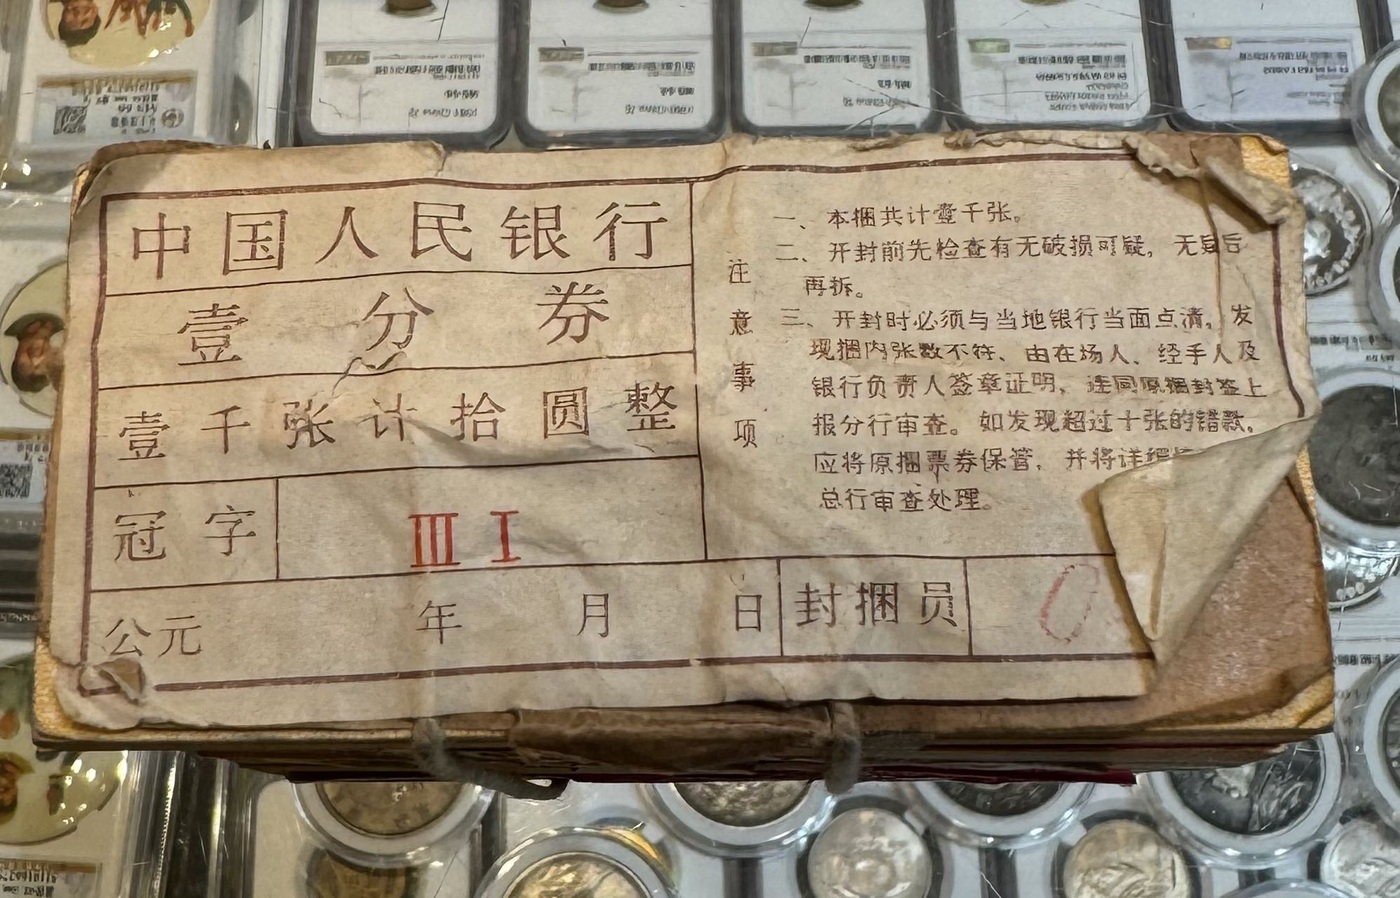 中国人民银行
壹分券
壹千张计拾圆整
冠字 III I
公元 年 月 日 封捆员
注意事项
一、本捆共计壹千张。
二、开封前先检查有无破损可疑，无疑后
再拆。
三、开封时必须与当地银行当面点清，发
现捆内张数不符、由在场人、经手人及
银行负责人签章证明，连同原捆封签上
报分行审查。如发现超过十张的错款，
应将原捆票券保管，并将详细
总行审查处理。